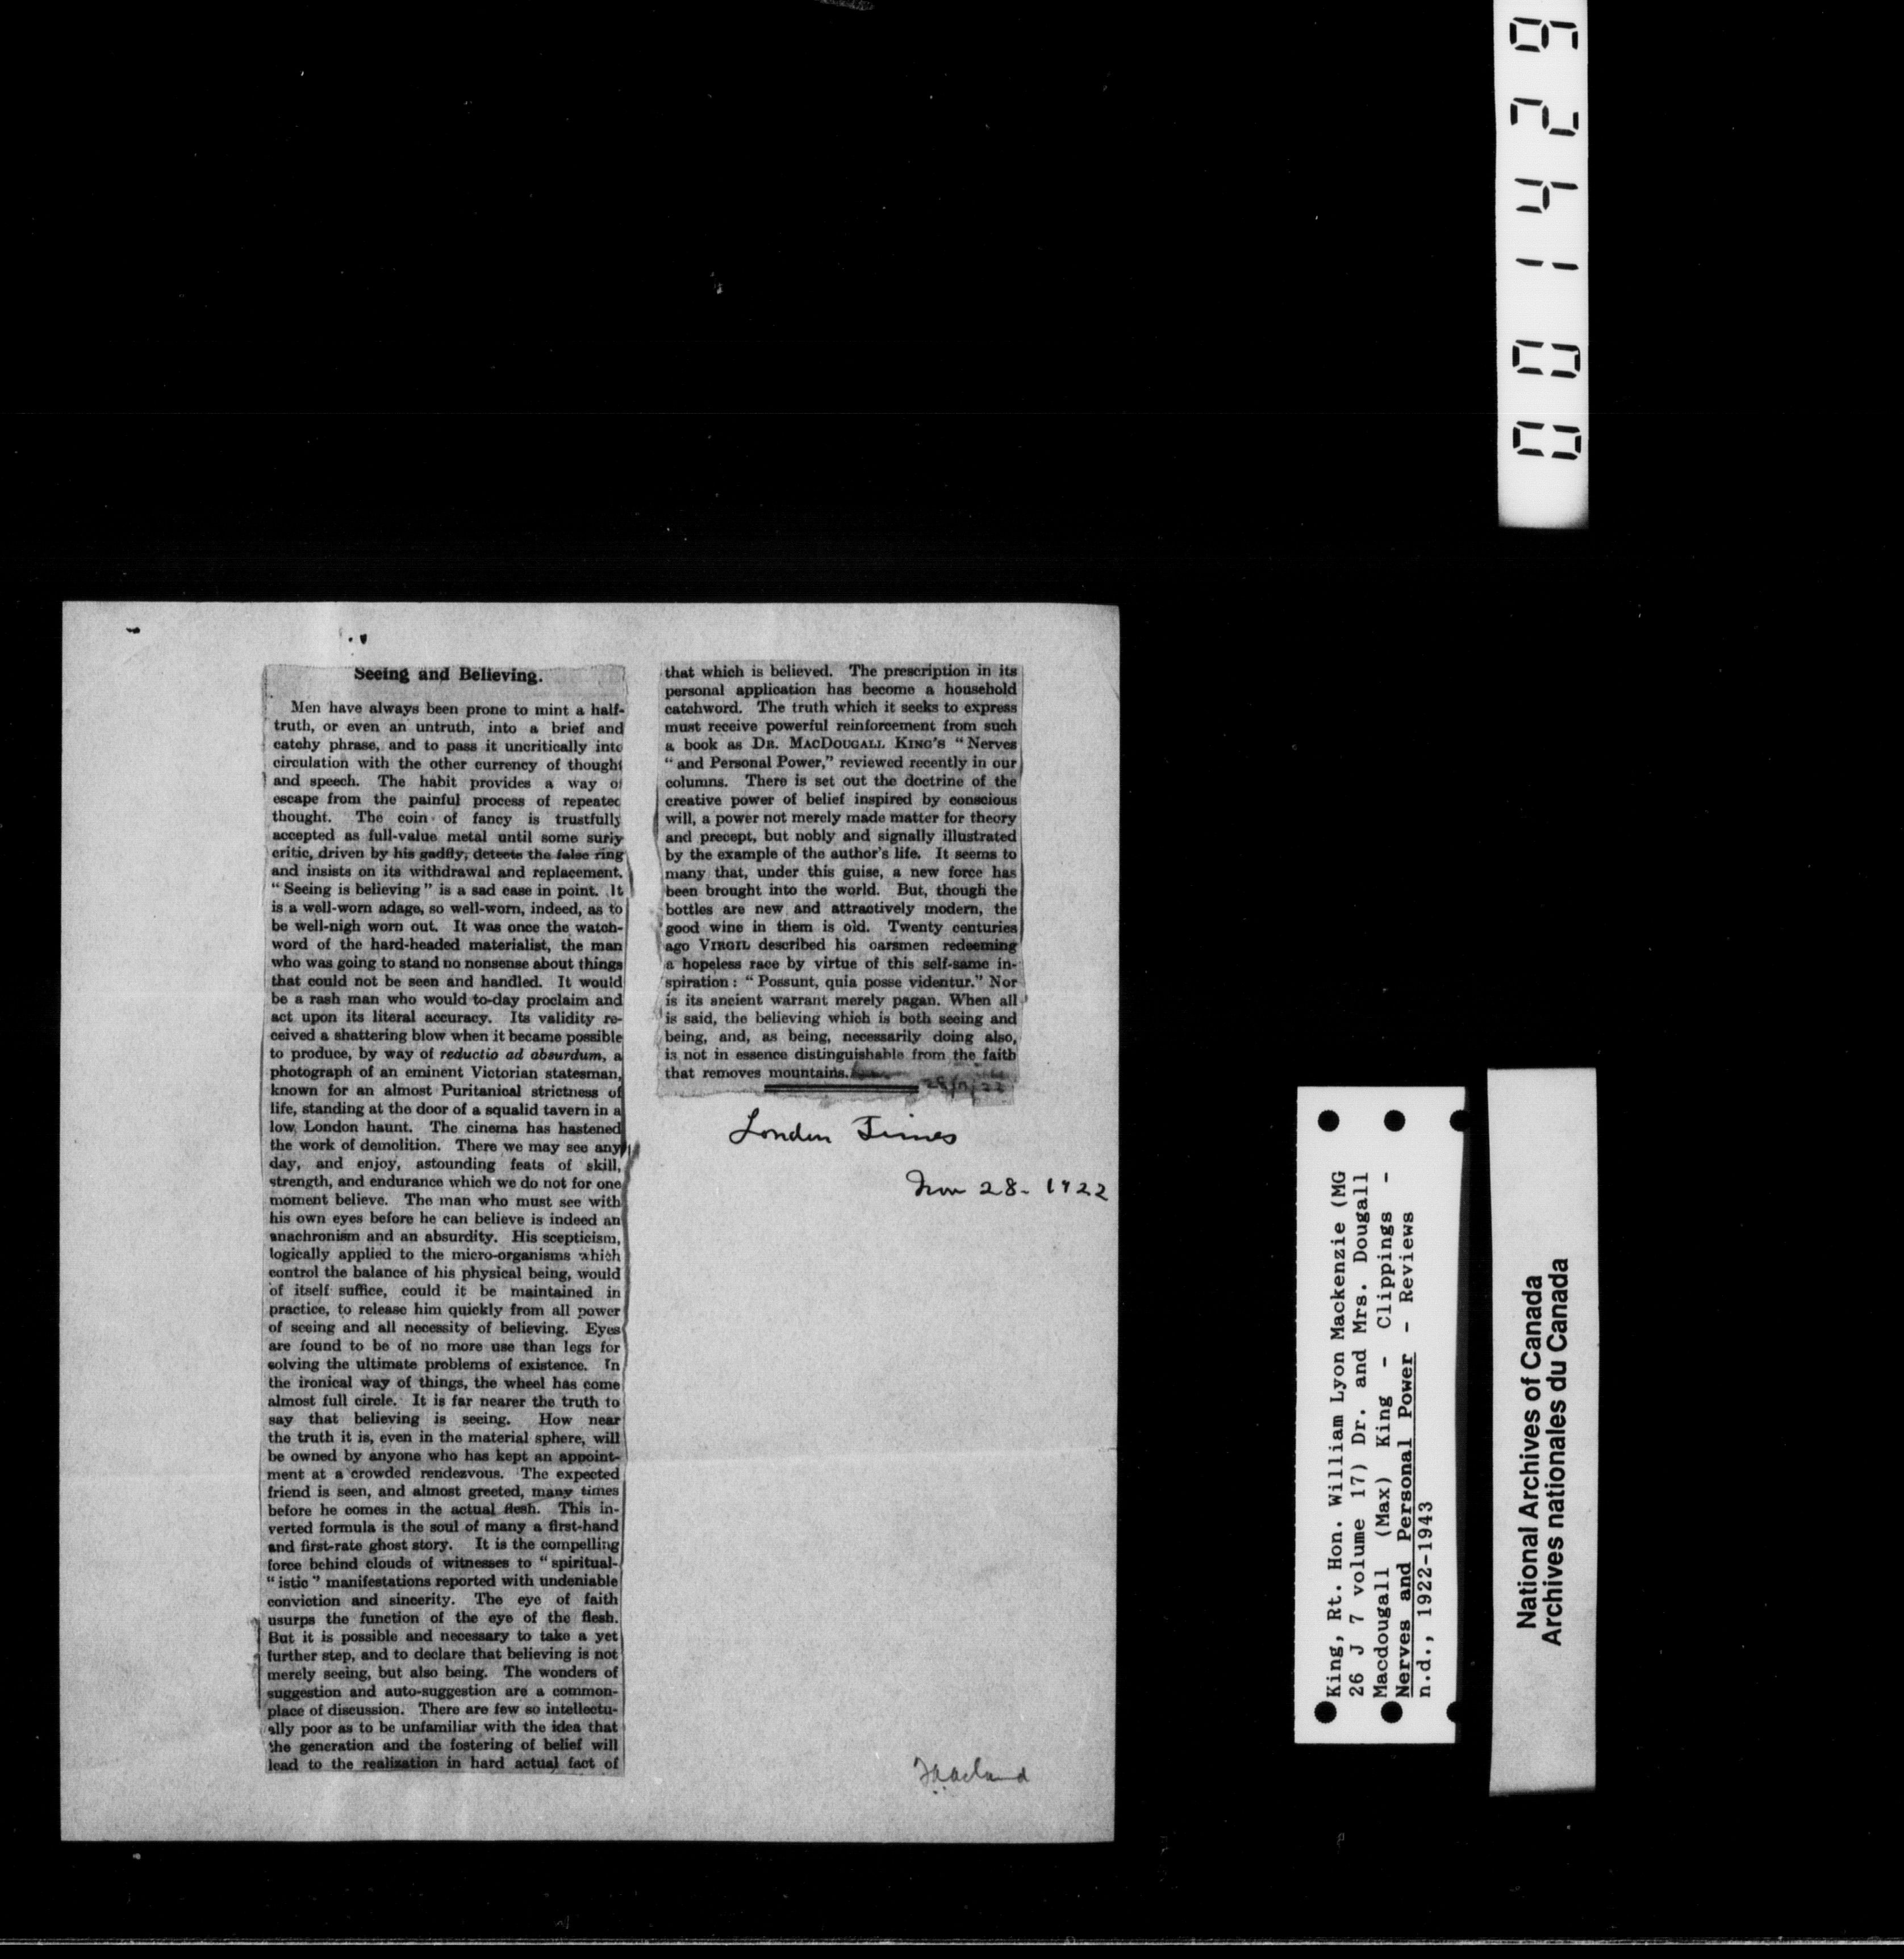 Seeing and Believing.
Men have always been prone to mint a half-
truth, or even an untruth, into a brief and
catchy phrase, and to pass it uncritically into
circulation with the other currency of thought
and speech. The habit provides a way of
escape from the painful process of repeated
thought. The coin of fancy is trustfully
accepted as full-value metal until some surly
critic, driven by his gadfly, detects the false ring
and insists on its withdrawal and replacement.
“Seeing is believing” is a sad case in point. It
is a well-worn adage, so well-worn, indeed, as to
be well-nigh worn out. It was once the watch-
word of the hard-headed materialist, the man
who was going to stand no nonsense about things
that could not be seen and handled. It would
be a rash man who would to-day proclaim and
act upon its literal accuracy. Its validity re-
ceived a shattering blow when it became possible
to produce, by way of reductio ad absurdum, a
photograph of an eminent Victorian statesman,
known for an almost Puritanical strictness of
life, standing at the door of a squalid tavern in a
low London haunt. The cinema has hastened
the work of demolition. There we may see any
day, and enjoy, astounding feats of skill,
strength, and endurance which we do not for one
moment believe. The man who must see with
his own eyes before he can believe is indeed an
anachronism and an absurdity. His scepticism,
logically applied to the micro-organisms which
control the balance of his physical being, would
of itself suffice, could it be maintained in
practice, to release him quickly from all power
of seeing and all necessity of believing. Eyes
are found to be of no more use than legs for
solving the ultimate problems of existence. In
the ironical way of things, the wheel has come
almost full circle. It is far nearer the truth to
say that believing is seeing. How near
the truth it is, even in the material sphere, will
be owned by anyone who has kept an appoint-
ment at a crowded rendezvous. The expected
friend is seen, and almost greeted, many times
before he comes in the actual flesh. This in-
verted formula is the soul of many a first-hand
and first-rate ghost story. It is the compelling
force behind clouds of witnesses to “spiritual-
“istic” manifestations reported with undeniable
conviction and sincerity. The eye of faith
usurps the function of the eye of the flesh.
But it is possible and necessary to take a yet
further step, and to declare that believing is not
merely seeing, but also being. The wonders of
suggestion and auto-suggestion are a common-
place of discussion. There are few so intellectu-
ally poor as to be unfamiliar with the idea that
the generation and the fostering of belief will
lead to the realization in hard actual fact of
that which is believed. The prescription in its
personal application has become a household
catchword. The truth which it seeks to express
must receive powerful reinforcement from such
a book as DR. MACDOUGALL KING'S “Nerves
“and Personal Power,” reviewed recently in our
columns. There is set out the doctrine of the
creative power of belief inspired by conscious
will, a power not merely made matter for theory
and precept, but nobly and signally illustrated
by the example of the author's life. It seems to
many that, under this guise, a new force has
been brought into the world. But, though the
bottles are new and attractively modern, the
good wine in them is old. Twenty centuries
ago VIRGIL described his oarsmen redeeming
a hopeless race by virtue of this self-same in-
spiration: “Possunt, quia posse videntur.” Nor
is its ancient warrant merely pagan. When all
is said, the believing which is both seeing and
being, and, as being, necessarily doing also,
is not in essence distinguishable from the faith
that removes mountains.
28/11/22
London Times
Nov 28. 1922
001429
King, Rt. Hon. William Lyon Mackenzie (MG
26 J 7 volume 17) Dr. and Mrs. Dougall
Macdougall (Max) King - Clippings -
Nerves and Personal Power - Reviews
n.d., 1922-1943
National Archives of Canada
Archives nationales du Canada